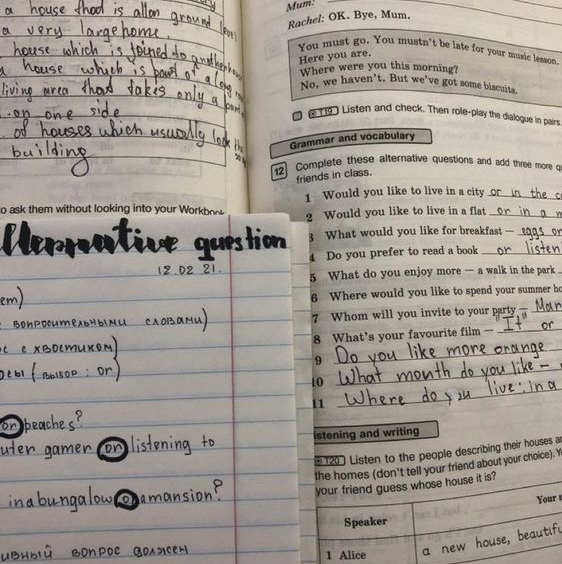 a house thad is allon ground level
a very large home.
house which is joined to another house
a house which is part of a long
living area that takes only a part
on one side
of houses which usually look the
building
to ask them without looking into your Workbook
Alternative question
12.02 21.
вопросительными словами)
с с хвостиком)
(выбор: or)
or peaches?
uter gamer or listening to
in a bungalow or a mansion?
ивный вопрос должен
Mum:
Rachel: OK. Bye, Mum.
You must go. You mustn't be late for your music lesson.
Here you are.
Where were you this morning?
No, we haven't. But we've got some biscuits.
T19 Listen and check. Then role-play the dialogue in pairs
Grammar and vocabulary
12 Complete these alternative questions and add three more
friends in class.
1 Would you like to live in a city or in the
2 Would you like to live in a flat or in a
3 What would you like for breakfast – eggs or
4 Do you prefer to read a book or listen
5 What do you enjoy more – a walk in the park
6 Where would you like to spend your summer
7 Whom will you invite to your party –
8 What's your favourite film – "It" or
9 Do you like more orange
10 What month do you like –
11 Where do you live: in a
Listening and writing
T20 Listen to the people describing their houses
the homes (don't tell your friend about your choice).
your friend guess whose house it is?
Speaker
Your
1 Alice
a new house, beautiful